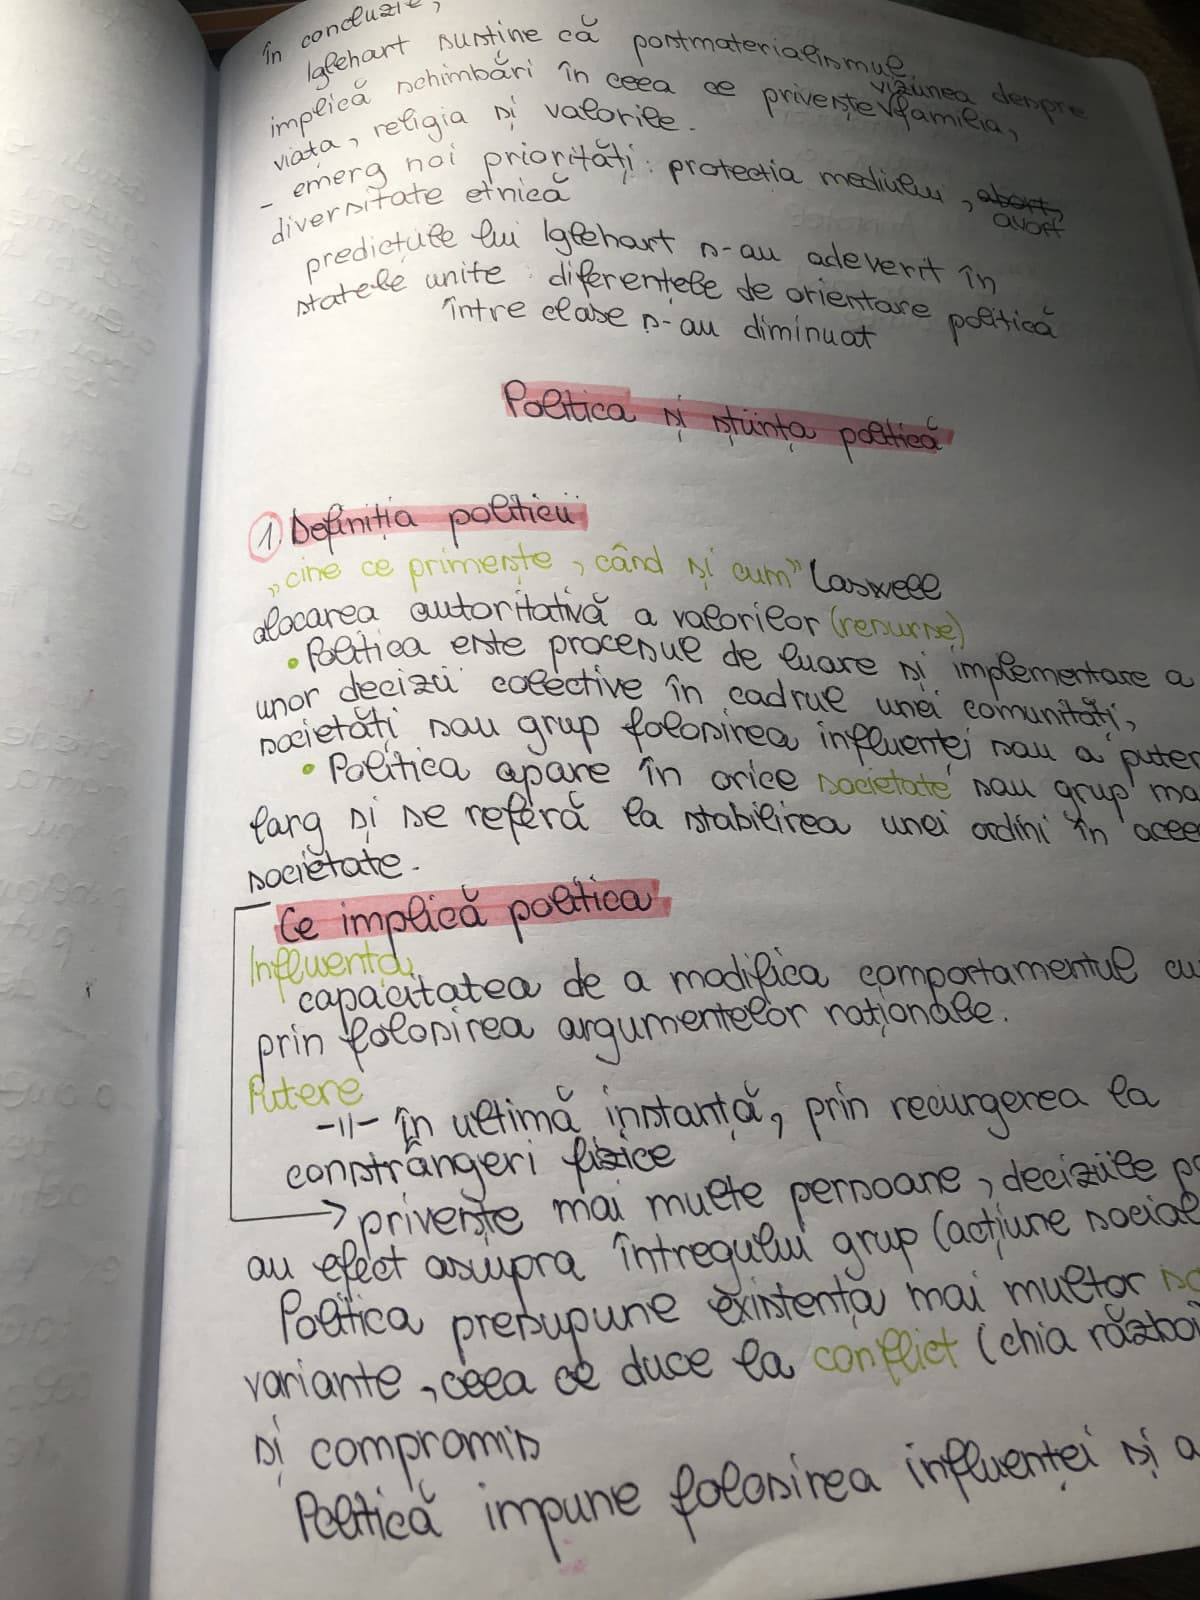 În concluzie,
Iglehart susține că postmaterialismul
implică schimbări în ceea ce privește viziunea despre familia,
viața, religia și valorile.
- emerg noi priorități: protecția mediului, abort, avort
diversitate etnică
predicțiile lui Iglehart s-au adeverit în
statele unite: diferențele de orientare politică
între clase s-au diminuat
Politica și știința politică
1. Definiția politicii
„cine ce primește, când și cum” Laswell
alocarea autoritativă a valorilor (resurse)
• Politica este procesul de luare și implementare a
unor decizii colective în cadrul unei comunități,
societăți sau grup folosirea influenței sau a puter
• Politica apare în orice societate sau grup ma
larg și se referă la stabilirea unei ordini în acee
societate.
Ce implică politica
Influența
capacitatea de a modifica comportamentul cu
prin folosirea argumentelor raționale.
Putere
-11- în ultimă instanță, prin recurgerea la
constrângeri fizice
→ privește mai multe persoane, deciziile po
au efect asupra întregului grup (acțiune social
Politica presupune existența mai multor
variante, ceea ce duce la conflict (chia războ
și compromis
Politică impune folosirea influenței și a